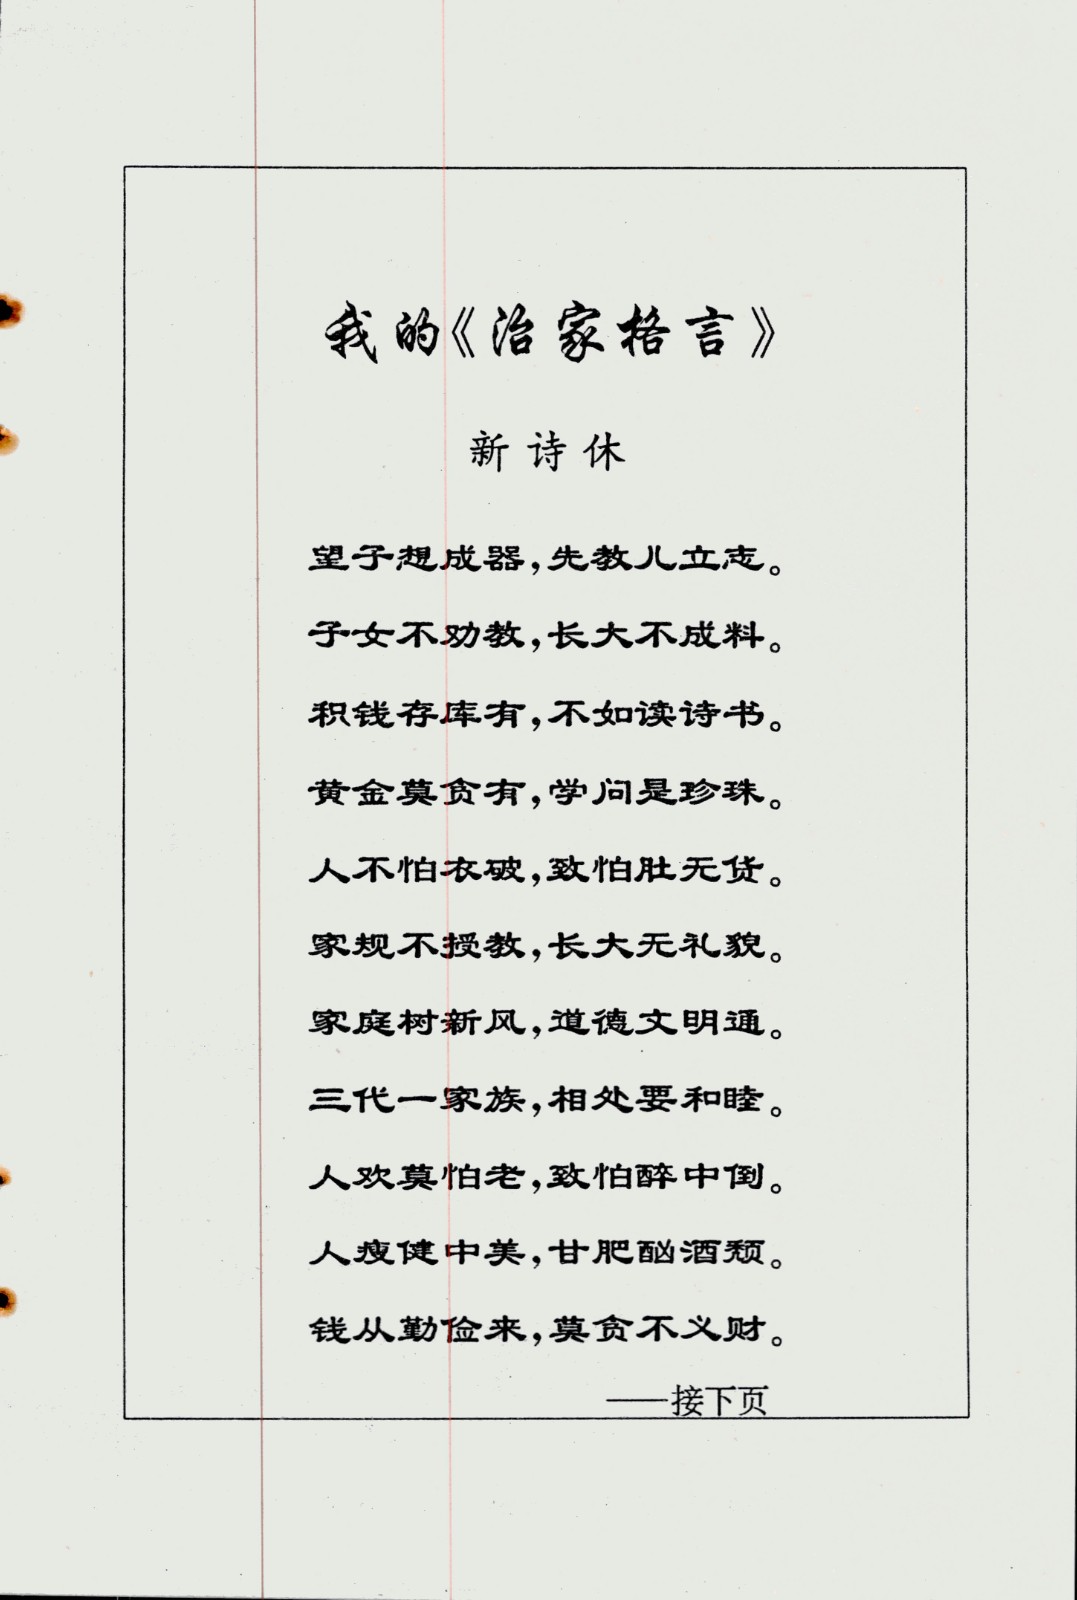 我的《治家格言》
新诗休
望子想成器,先教儿立志。
子女不劝教,长大不成料。
积钱存库有,不如读诗书。
黄金莫贪有,学问是珍珠。
人不怕衣破,致怕肚无货。
家规不授教,长大无礼貌。
家庭树新风,道德文明通。
三代一家族,相处要和睦。
人欢莫怕老,致怕醉中倒。
人瘦健中美,甘肥酗酒颓。
钱从勤俭来,莫贪不义财。
——接下页